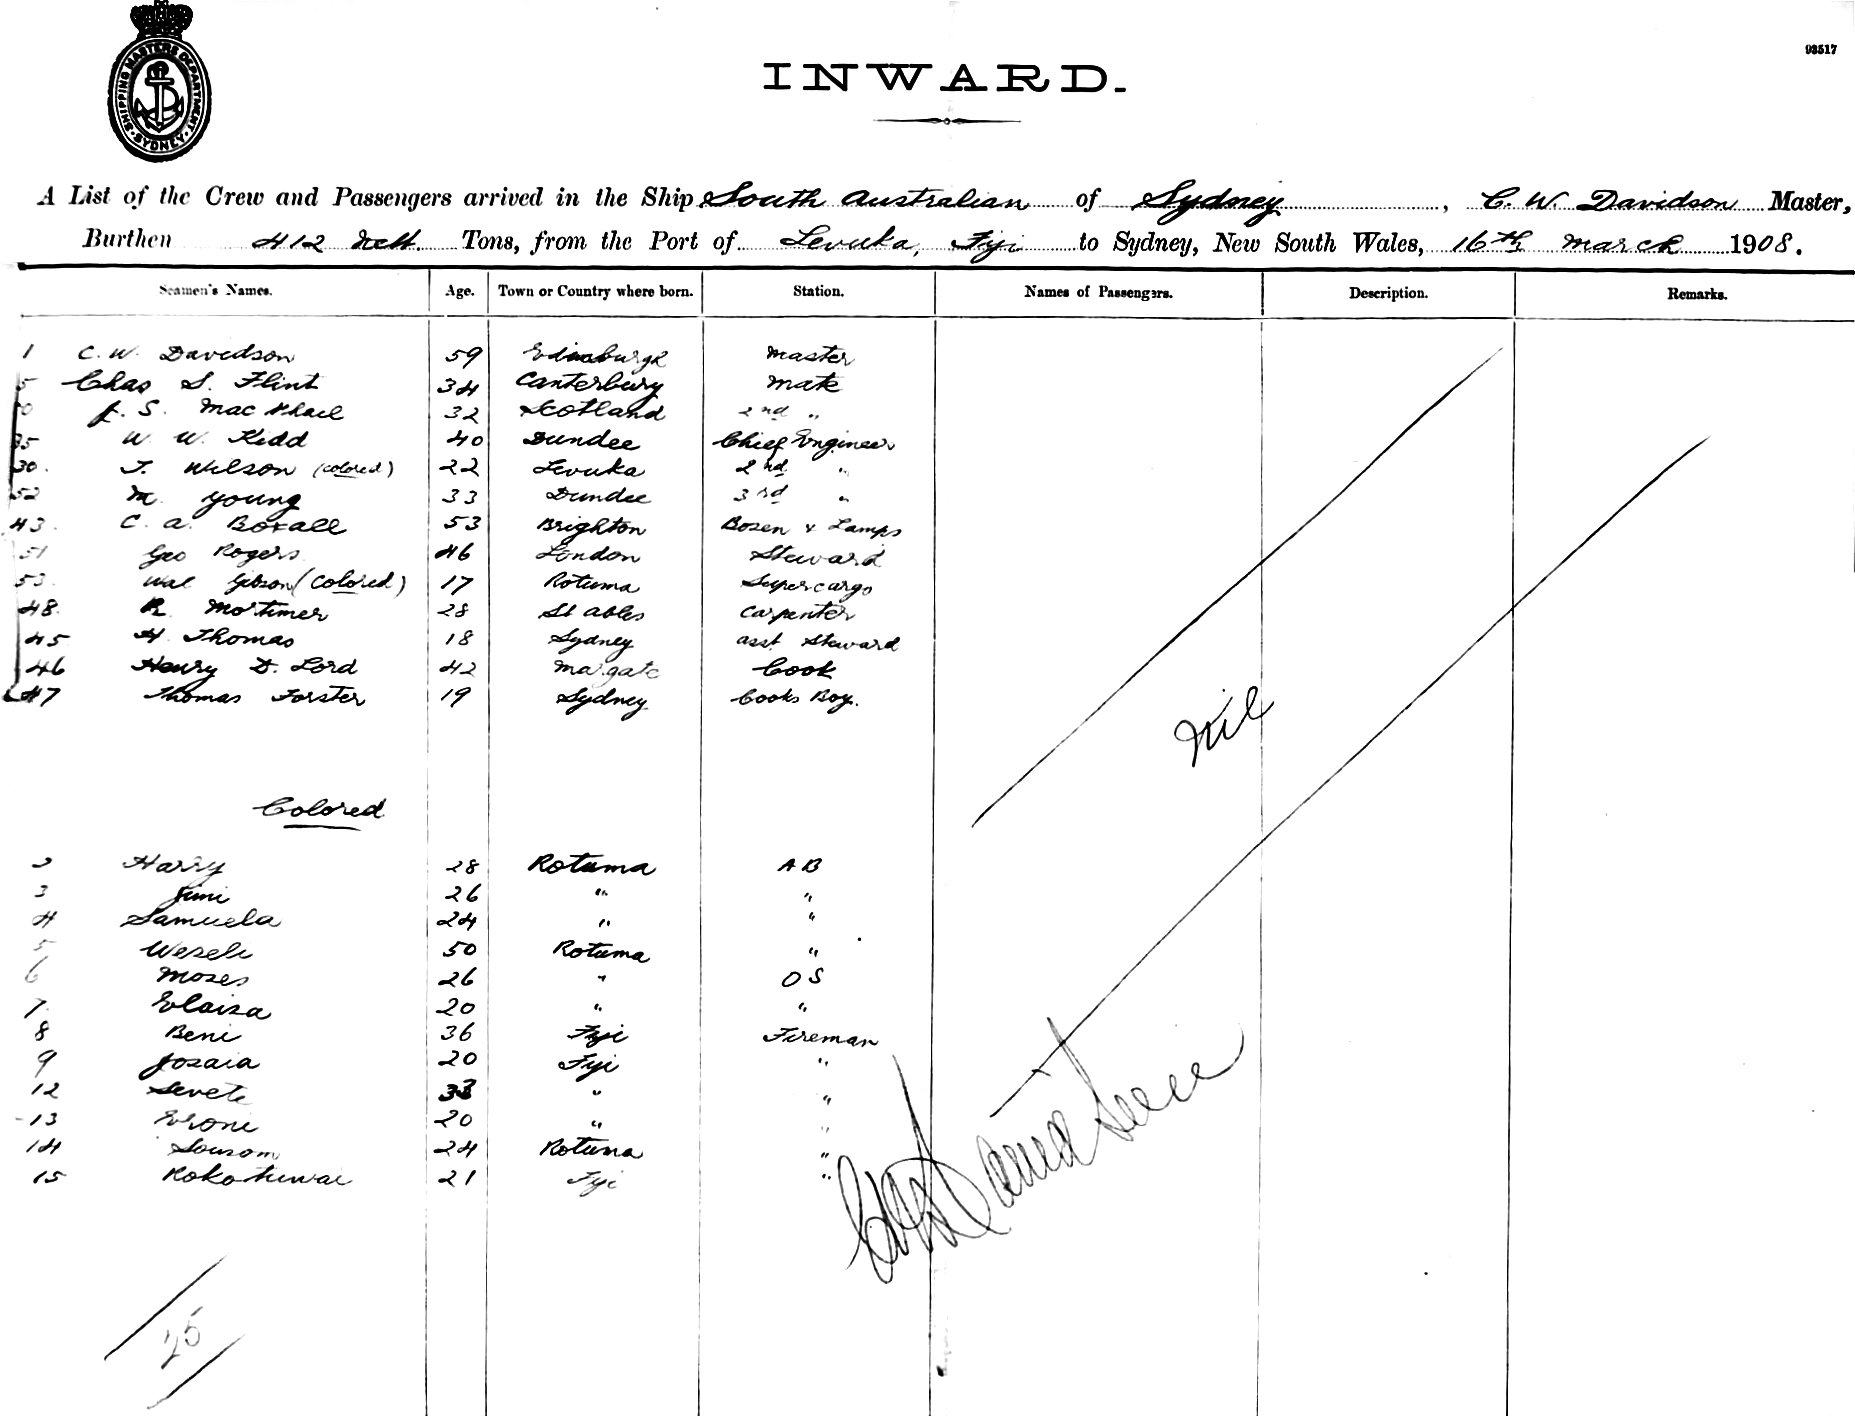 SHIPPING MASTERS DEPARTMENT · SYDNEY ·
93517
INWARD.
A List of the Crew and Passengers arrived in the Ship South Australian of Sydney, C. W. Davidson Master,
Burthen 412 Nett. Tons, from the Port of Levuka, Fiji to Sydney, New South Wales, 16th March 1908.
Seamen's Names. Age. Town or Country where born. Station. Names of Passengers. Description. Remarks.
1 C. W. Davidson 59 Edinburgh Master
5 Chas S. Flint 34 Canterbury Mate
J. S. MacPhail 32 Scotland 2nd "
35 W. W. Kidd 40 Dundee Chief Engineer
30. T. Wilson (colored) 22 Levuka 2nd "
52 M. Young 33 Dundee 3rd "
43. C. A. Boxall 53 Brighton Bosen & Lamps
51 Geo Rogers 46 London Steward
53. Wal Gibson (Colored) 17 Rotuma Supercargo
48. R. Mortimer 28 St Carpenter
45 H. Thomas 18 Sydney asst Steward
46 Henry D. Lord 42 Margate Cook
47 Thomas Forster 19 Sydney Cooks Boy.
Nil
Colored
2 Harry 28 Rotuma A B
3 Jimi 26 " "
4 Samuela 24 " "
5 Weseli 50 Rotuma "
6 Moses 26 " O S
7. Elaisa 20 " "
8 Beni 36 Fiji Fireman
9 Josaia 20 Fiji "
12 Sevete 33 " "
13 Erone 20 " "
14 24 Rotuma "
15 Rokotuwai 21 Fiji "
25